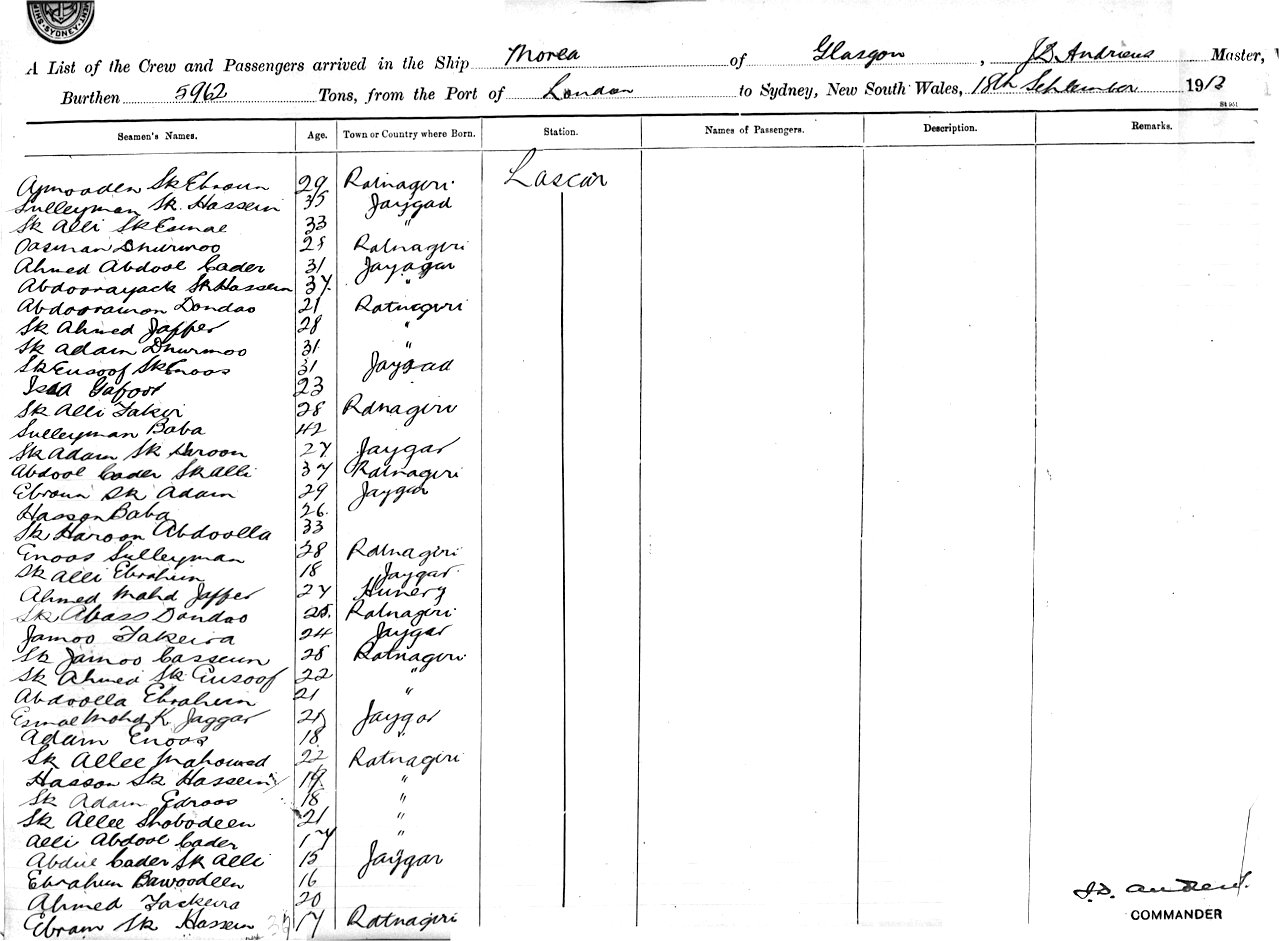 SYDNEY
A List of the Crew and Passengers arrived in the Ship Morea of Glasgow, Master,
Burthen 5962 Tons, from the Port of London to Sydney, New South Wales, 18th September 1913
St 951
Seamen's Names. Age. Town or Country where Born. Station. Names of Passengers. Description. Remarks.
Sk Ebroun 29 Ratnagiri Lascar
Sulleyman Sk. Hassein 35 Jaygad
Sk Alli Sk Esmae 33 "
Oasman Dhurmoo 25 Ratnagiri
Ahmed Abdool Cader 31 Jayagar
Abdoorayack Sk Hassein 37 "
Abdooramon Dondao 21 Ratnagiri
Sk Ahmed Jaffer 28 "
Sk Adam Dhurmoo 31 "
Sk Eusoof Sk Enoos 31 Jaygad
Issa Gafoor 23
Sk Alli Fakir 28 Ratnagiri
Sulleyman Baba 42
Sk Adam Sk Haroon 27 Jaygar
Abdool Cader Sk Alli 37 Ratnagiri
Ebroun Sk Adam 29 Jaygar
Hasson Baba 26
Sk Haroon Abdoolla 33
Enoos Sulleyman 28 Ratnagiri
Sk Alli Ebrahim 18 Jaygar
Ahmed Mahd Jaffer 27
Sk Abass Dondao 25 Ratnagiri
Jamoo Fakeira 24 Jaygar
Sk Jamoo Casseem 25 Ratnagiri
Sk Ahmed Sk Eusoof 22 "
Abdoolla Ebrahim 21 "
Esmae Mohd K. Jaggar Jaygar
Adam Enoos 18 "
Sk Allee Mahomed 22 Ratnagiri
Hasson Sk Hassein 19 "
Sk Adam Edroos 18 "
Sk Allee Shobodeen 21 "
Alli Abdool Cader 17 "
Abdul Cader Sk Alli 15 Jaygar
Ebrahim Bawoodeen 16
Ahmed Fackeira 20
Ebram Sk Hassein 17 Ratnagiri
COMMANDER